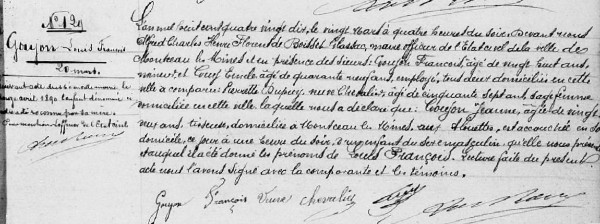 N° 129
Goujon Louis Francois
20 mars
L'an mil huit cent quatre vingt dix, le vingt Mars à quatre heures du soir. Devant nous
Alfred Charles Henri Florent de Boisset Glassac, maire officier de l'Etat civil de la ville de
Montceau les Mines et en présence des sieurs: Goujon François, âgé de vingt huit ans,
mineur et Émile, âgé de quarante neuf ans, employé, tous deux domiciliés en cette
ville à comparu: Pierrette Duprey, veuve Chevalier, âgée de cinquante sept ans, sage femme
domiciliée en cette ville, laquelle nous a déclaré que: Goujon Jeanne, âgée de vingt
ans, domiciliée à Montceau les Mines, aux Alouettes, est accouchée en son
domicile, ce jour à une heure du soir, d'un enfant du sexe masculin, qu'elle nous présente
et auquel il a été donné les prénoms de Louis François. Lecture faite du présent
acte nous l'avons signé avec la comparante et les témoins.
Suivant acte du
avril 1890 l'enfant dénommé
ci-contre a été reconnu par sa mère.
Pour mention l'officier de l'Etat civil
Goujon François Veuve Chevalier